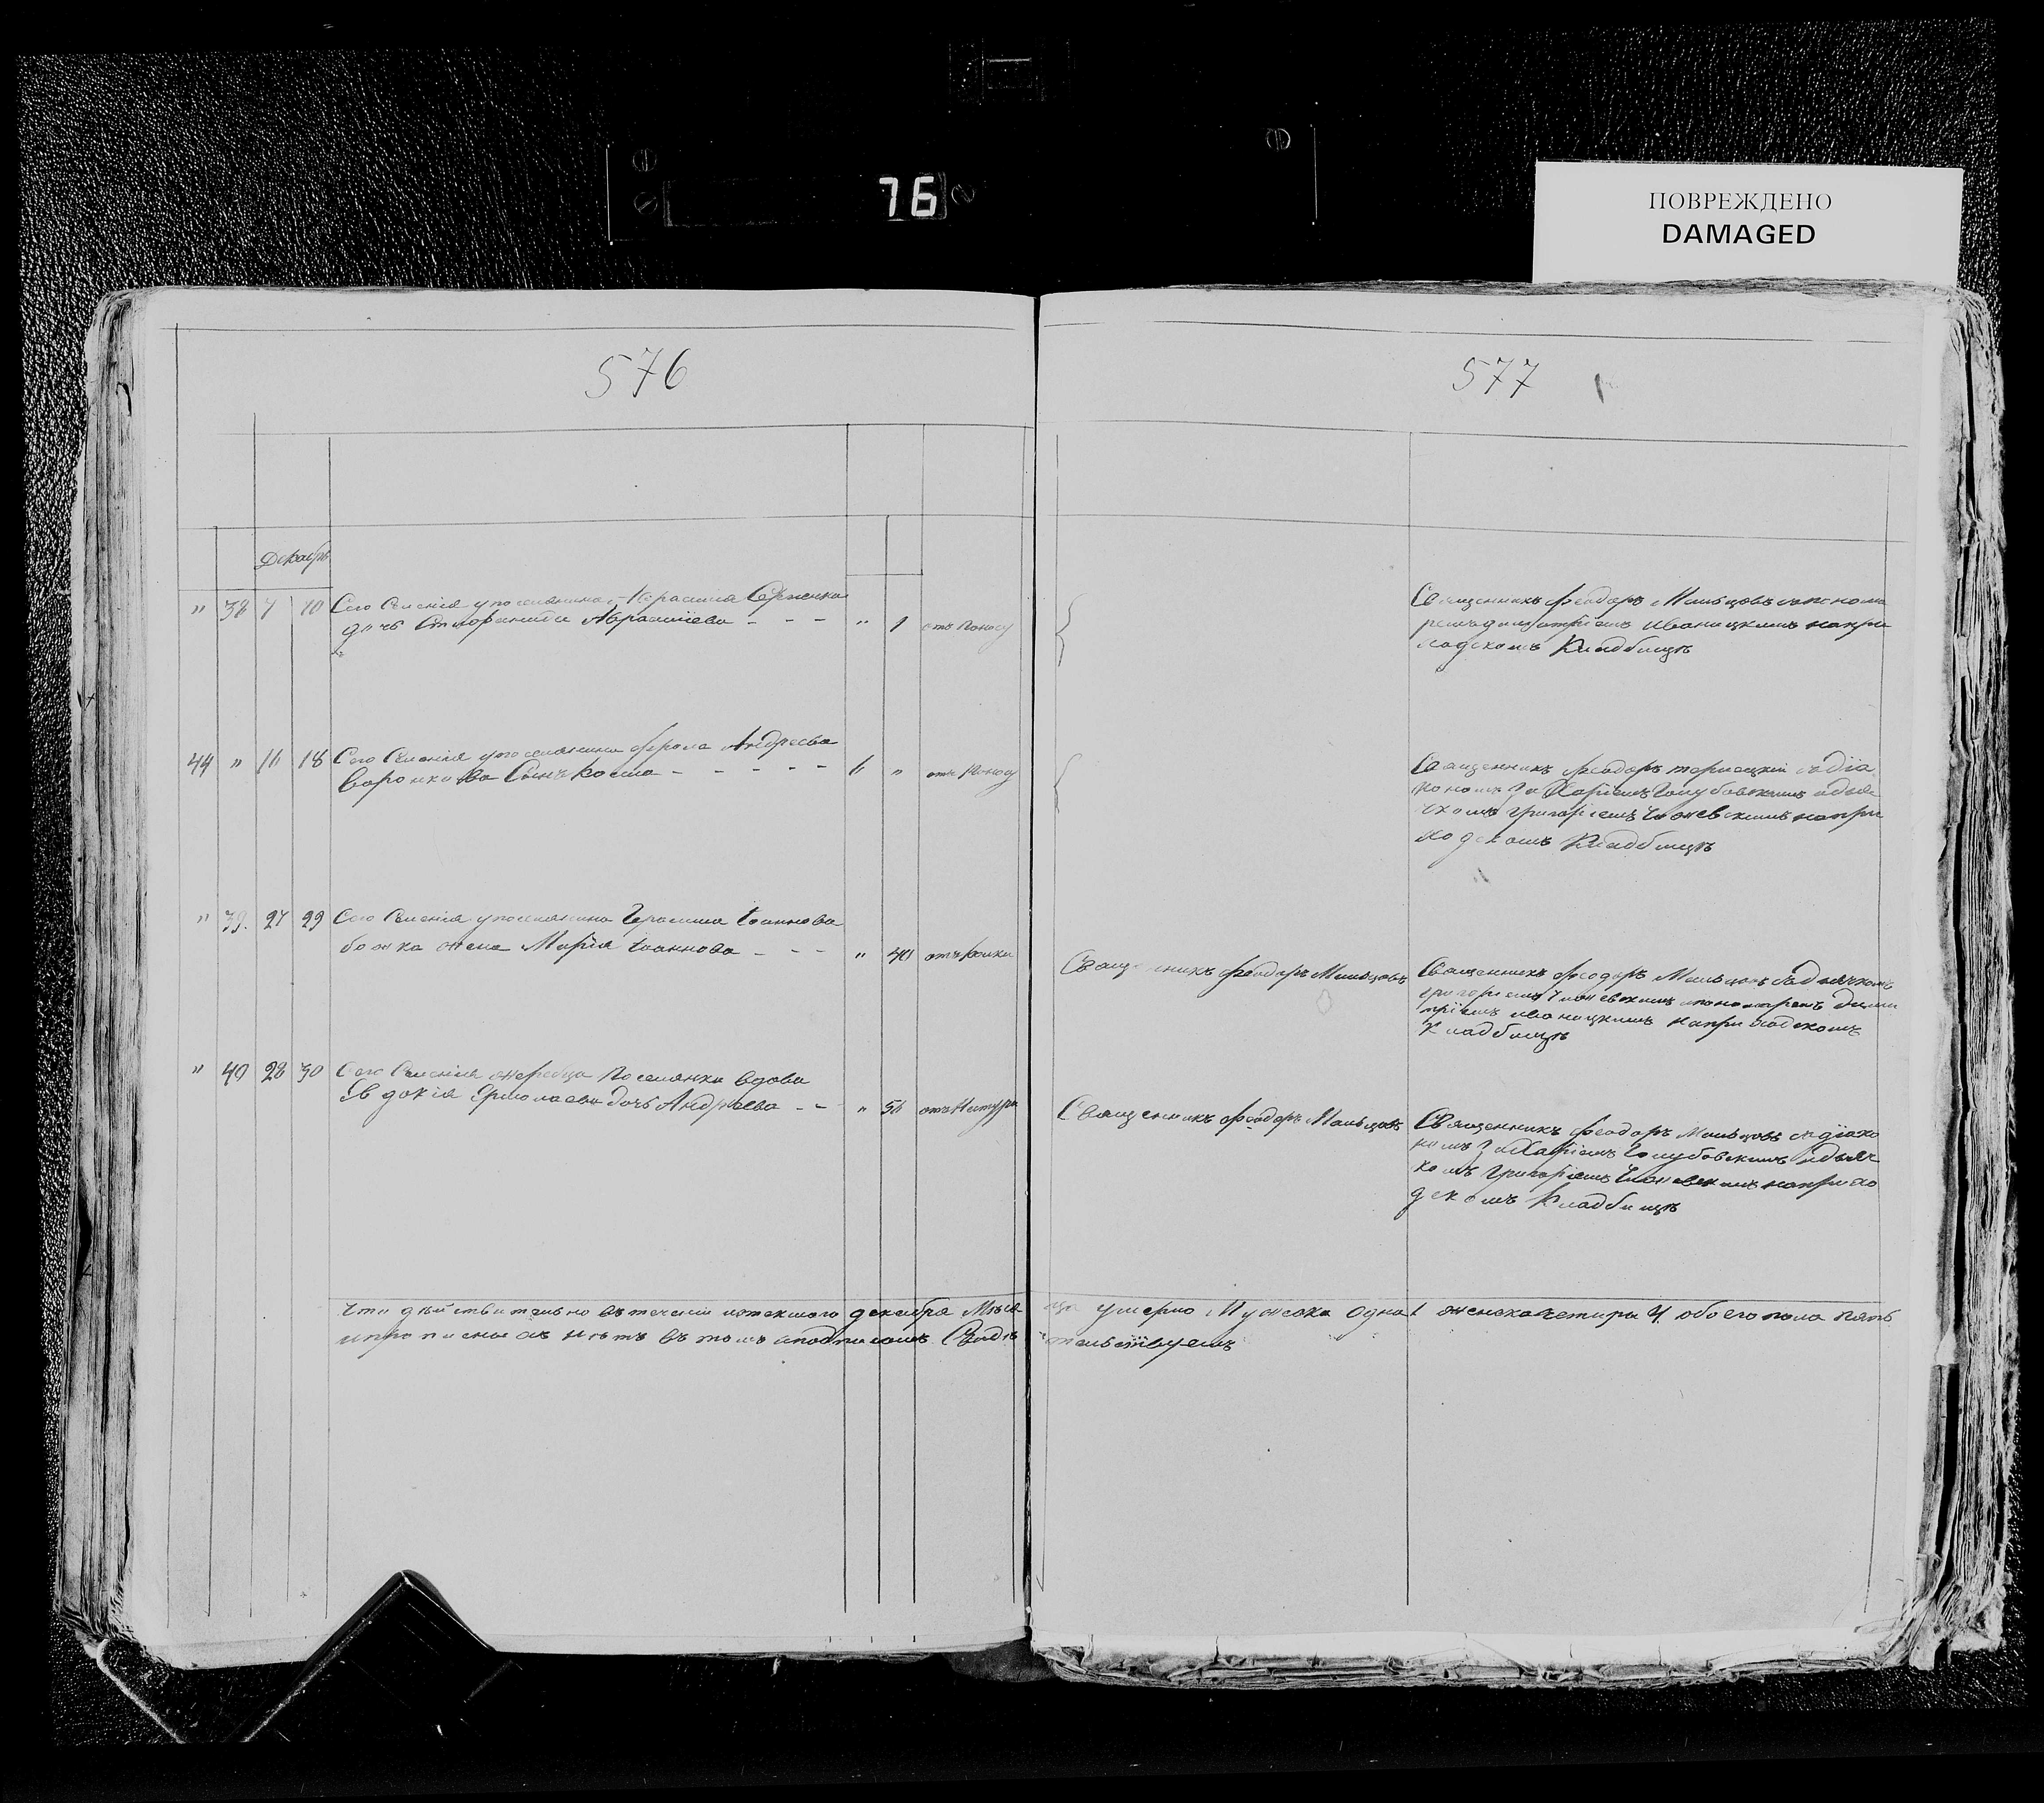 76
ПОВРЕЖДЕНО
DAMAGED
576
577
Декабрь
" 38 7 10 Сего Селенія у поселянина
дочь Авраамиева - - - " 1 отъ поносу
Священникъ Феодоръ Мальцовъ
Иваницкимъ напри
ходскомъ Кладбищѣ
44 " 16 18 Сего Селенія у поселянина Фрола Андреева
Воронкова Сынъ Косма - - - - - 6 " отъ поносу
Священникъ Феодоръ съ діа
кономъ Захаріемъ Голубовскимъ идьяч
комъ Григоріемъ напри
ходскомъ Кладбищѣ
" 39. 27 29 Сего Селенія у поселянина Герасима Іоаннова
божка жена Марія Іоаннова - - - " 40
Священникъ Феодоръ Мальцовъ
Священникъ Феодоръ Мальцовъ сдьячкомъ
Григоріемъ ипономаремъ Дими
тріемъ иваницкимъ наприходскомъ
Кладбищѣ
" 40 28 30 Сего Селенія поселянка вдова
Евдокія Ермолаева дочь Андреева - - " 56 отъ Натуры
Священникъ Феодоръ Мальцовъ
Священникъ Феодоръ Мальцовъ сдіако
номъ Захаріемъ Голубовскимъ идьяч
комъ Григоріемъ наприхо
дскомъ Кладбищѣ
Что дѣйствительно втеченіи истекшаго декабря Мѣсяца умерло Мужеска Одна 1 женска четыри 4 обоего пола пять
ипрописныхъ нѣтъ въ томъ сподписомъ Свидѣтельствуемъ